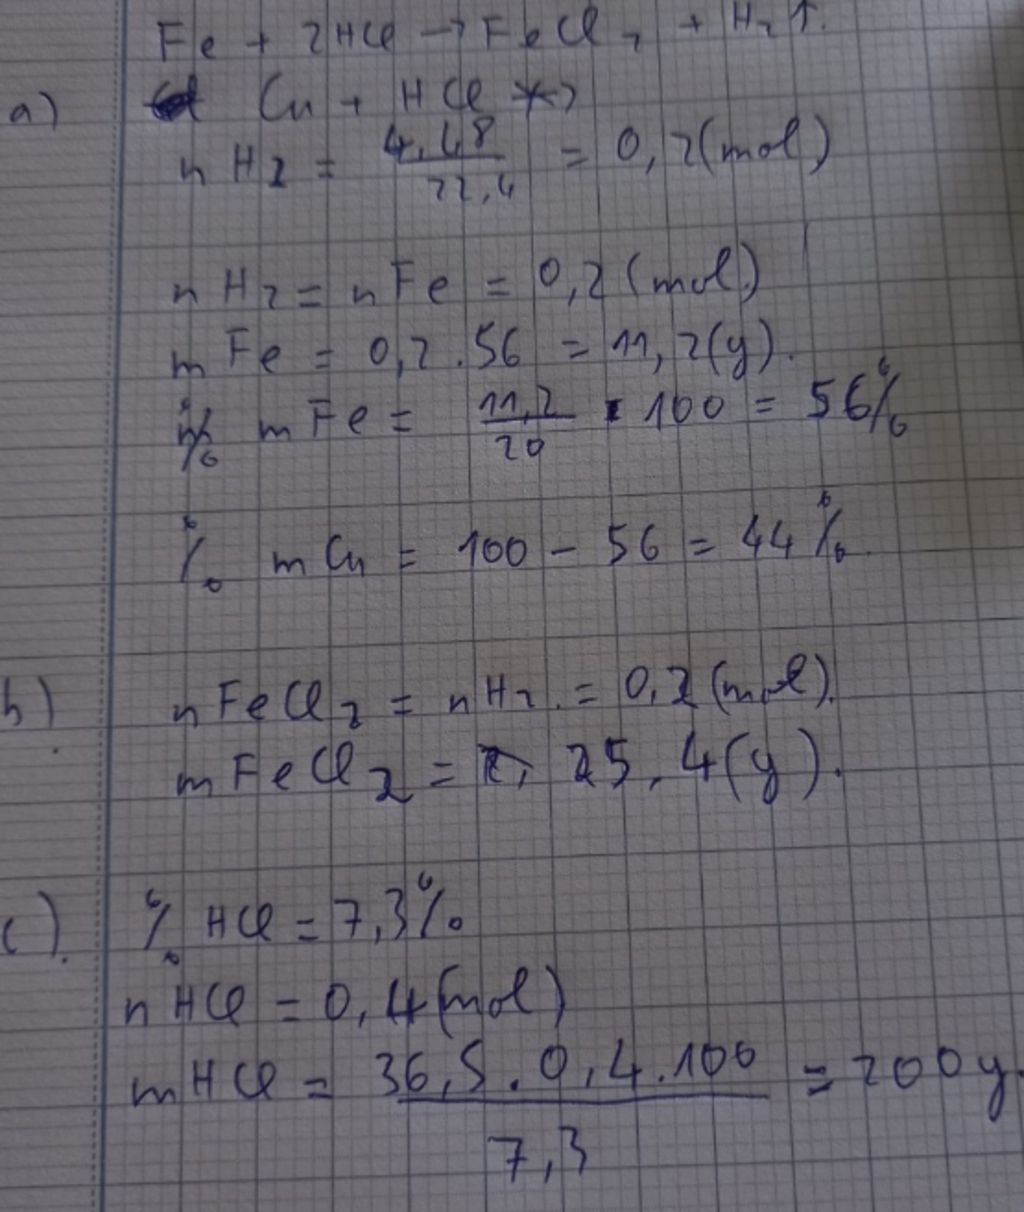 Fe + 2HCl → FeCl2 + H2↑.
a) Cu + HCl ×→
nH2 = 4,48/22,4 = 0,2(mol)
nH2 = nFe = 0,2(mol)
mFe = 0,2.56 = 11,2(g).
% mFe = 11,2/20 . 100 = 56%
% mCu = 100 - 56 = 44%.
b) nFeCl2 = nH2 = 0,2(mol).
mFeCl2 = 25,4(g).
c). % HCl = 7,3%
nHCl = 0,4(mol)
mHCl = 36,5.0,4.100/7,3 = 200g.